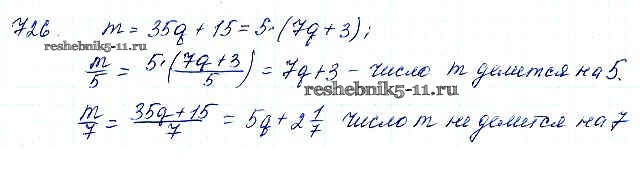 726. m = 35q + 15 = 5·(7q + 3);
reshebnik5-11.ru
m/5 = 5·(7q + 3)/5 = 7q + 3 - число m делится на 5.
reshebnik5-11.ru
m/7 = 35q + 15/7 = 5q + 2 1/7 число m не делится на 7